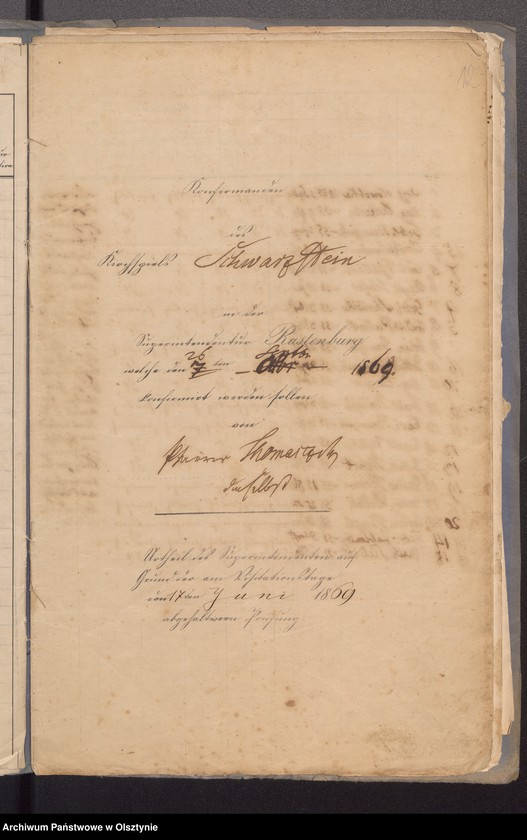 12
Konfirmanden
des
Kirchspiels Schwarzstein
in der
Superintendentur Rastenburg
26 Septbr.
welche den 7 ten Oktbr 1869.
konfirmirt werden sollen
von
Pfarrer
daselbst
Urtheil des Superintendenten auf
Grund der am Visitationstage
den 17 ten Juni 1869
abgehaltenen Prüfung
Archiwum Państwowe w Olsztynie